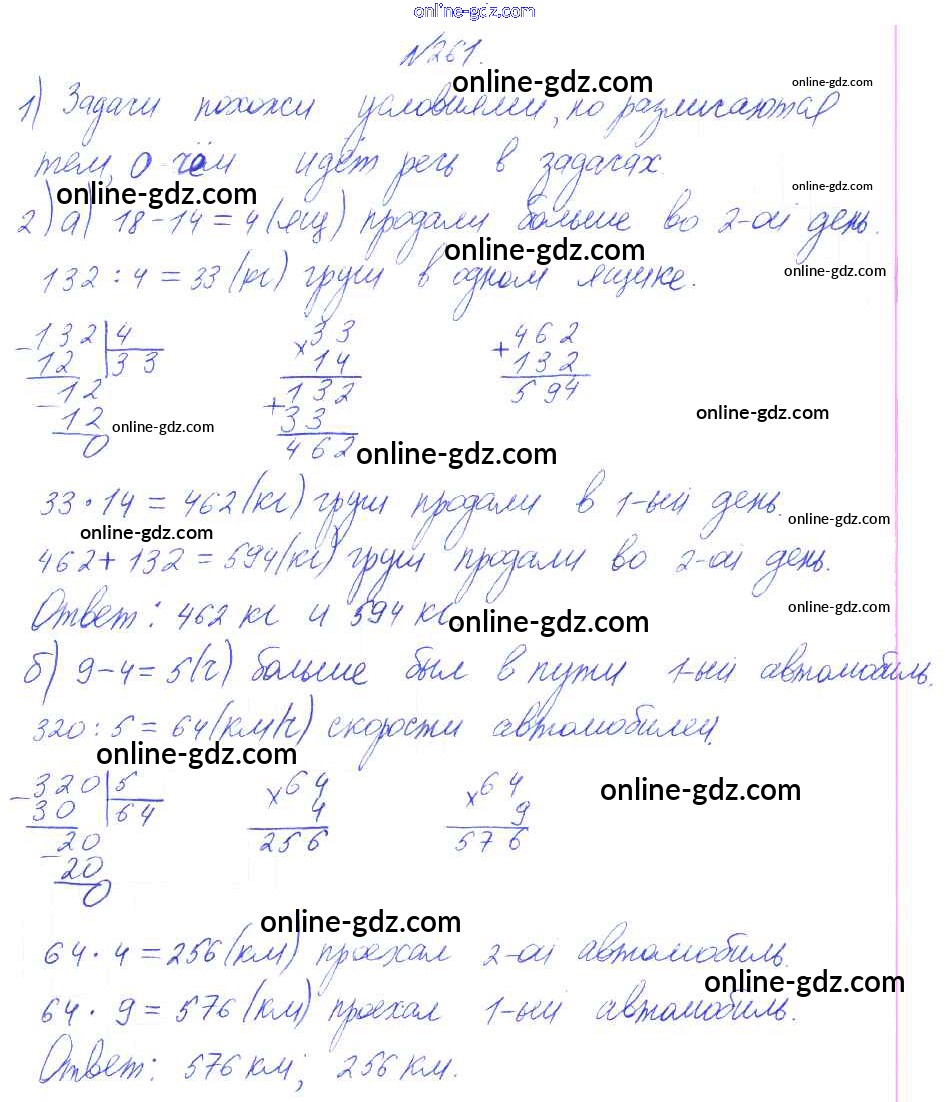 online-gdz.com
№261.
online-gdz.com
online-gdz.com
1) Задачи похожи условиями, но различаются
тем, о чём идёт речь в задачах.
online-gdz.com
online-gdz.com
2) а) 18-14=4(ящ) продали больше во 2-ой день.
online-gdz.com
online-gdz.com
132:4=33(кг) груш в одном ящике.
132 4
12 33
12
12
0
33
14
132
33
462
462
132
594
online-gdz.com
online-gdz.com
online-gdz.com
33·14=462(кг) груш продали в 1-ый день.
online-gdz.com
online-gdz.com
462+132=594(кг) груш продали во 2-ой день.
Ответ: 462 кг и 594 кг
online-gdz.com
online-gdz.com
б) 9-4=5(ч) больше был в пути 1-ый автомобиль.
320:5=64(км/ч) скорости автомобилей.
online-gdz.com
online-gdz.com
320 5
30 64
20
20
0
64
4
256
64
9
576
online-gdz.com
64·4=256(км) проехал 2-ой автомобиль.
online-gdz.com
64·9=576(км) проехал 1-ый автомобиль.
Ответ: 576 км; 256 км.